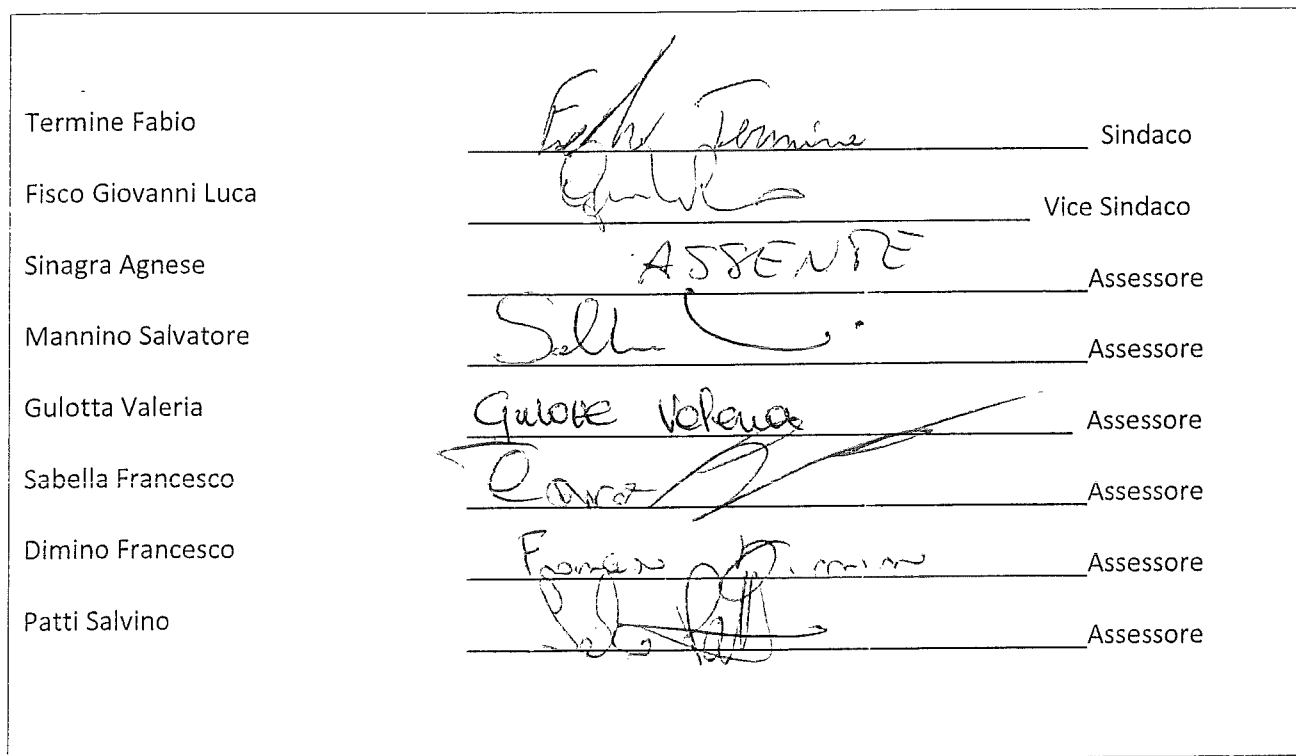 Termine Fabio Fabio Termine Sindaco
Fisco Giovanni Luca Vice Sindaco
Sinagra Agnese ASSENTE Assessore
Mannino Salvatore Assessore
Gulotta Valeria Valeria Assessore
Sabella Francesco Assessore
Dimino Francesco Francesco Dimino Assessore
Patti Salvino Assessore